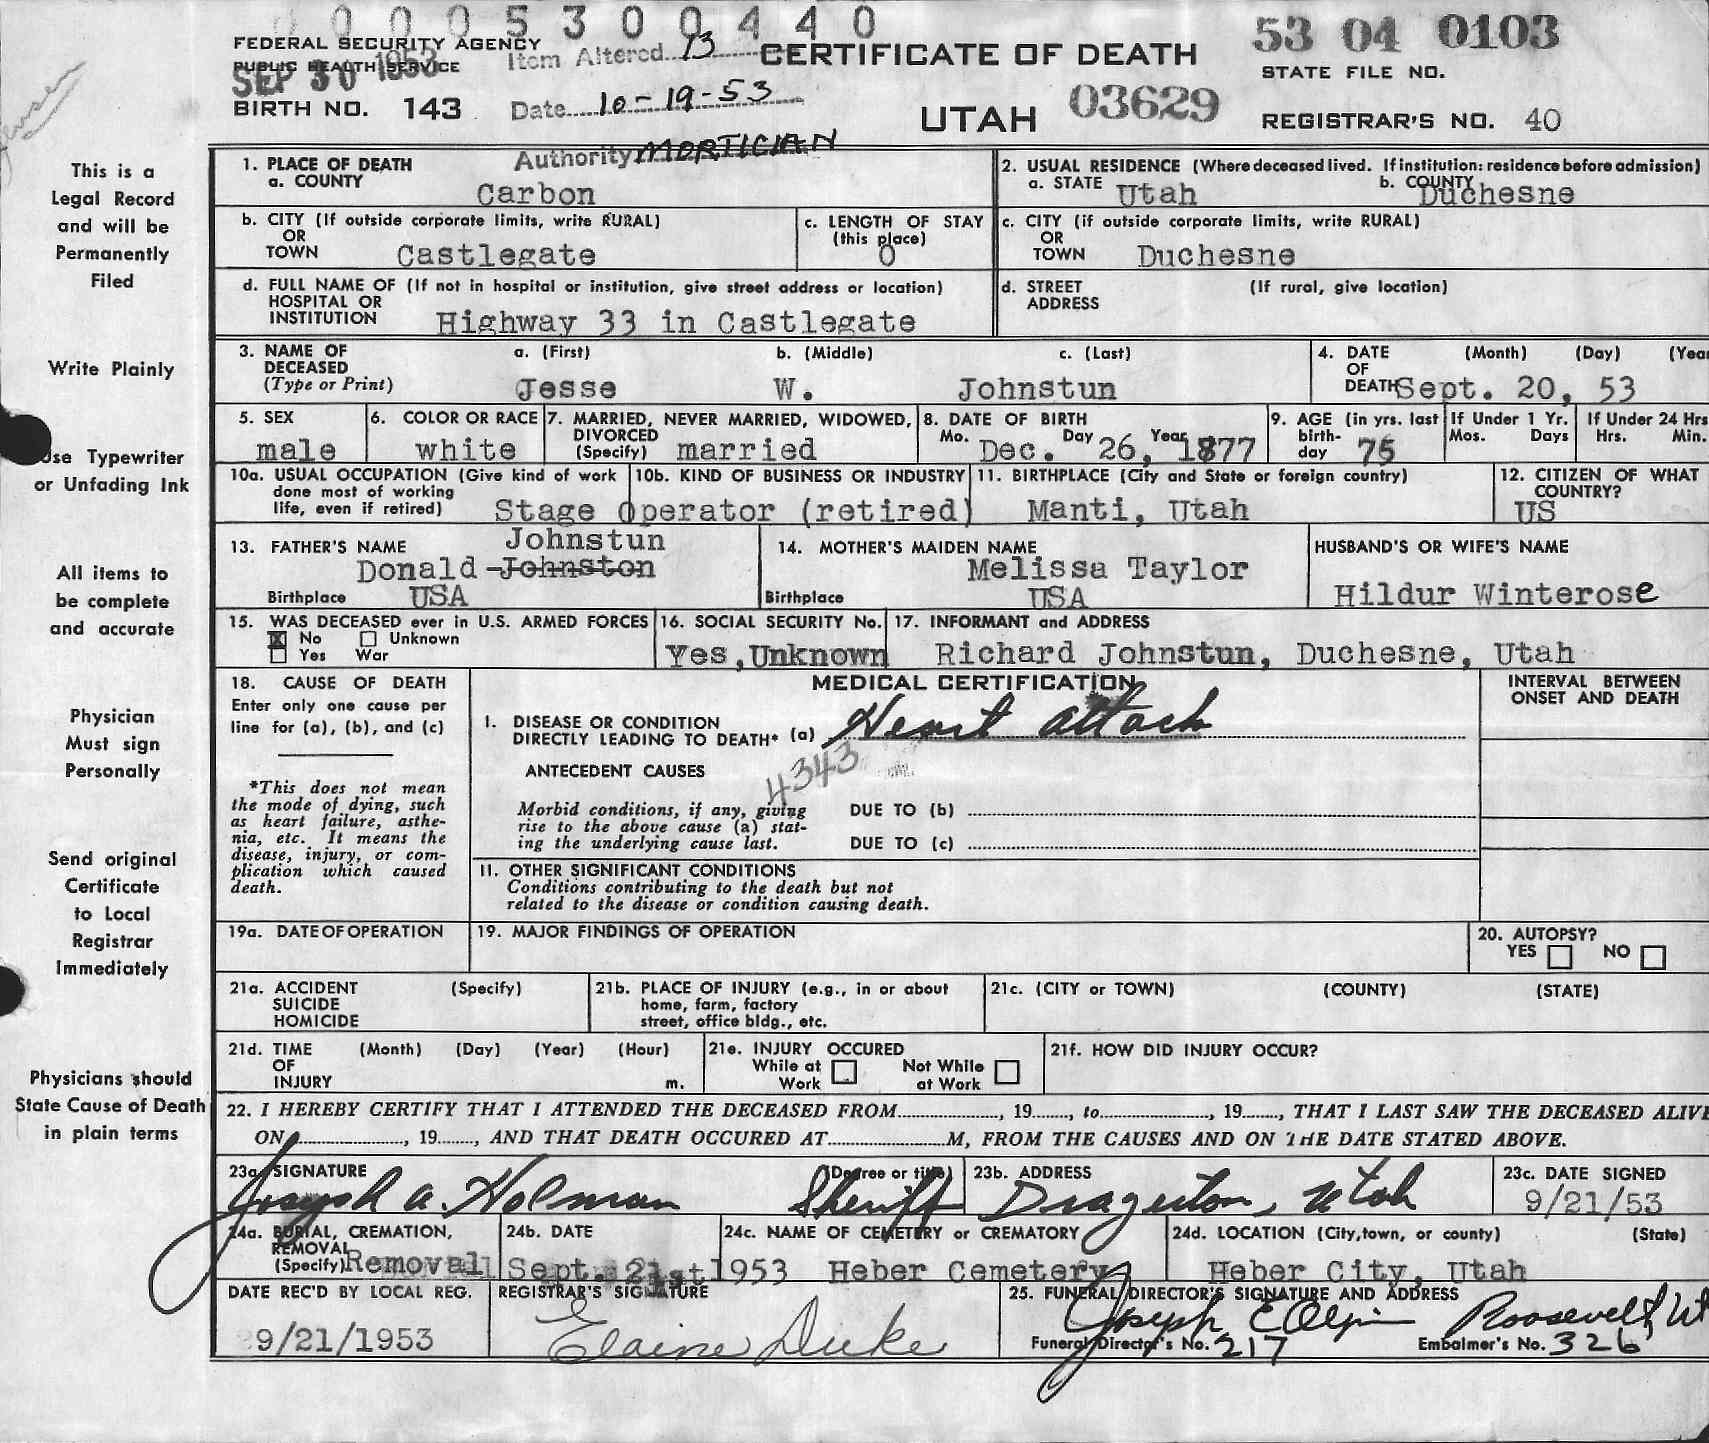 0005300440
FEDERAL SECURITY AGENCY
PUBLIC HEALTH SERVICE
SEP 30 1953
BIRTH NO. 143
Item Altered 13
Date 10-19-53
Authority MORTICIAN
CERTIFICATE OF DEATH
UTAH 03629
53 04 0103
STATE FILE NO.
REGISTRAR'S NO. 40
This is a
Legal Record
and will be
Permanently
Filed
Write Plainly
Use Typewriter
or Unfading Ink
All items to
be complete
and accurate
Physician
Must sign
Personally
Send original
Certificate
to Local
Registrar
Immediately
Physicians should
State Cause of Death
in plain terms
1. PLACE OF DEATH
a. COUNTY
Carbon
2. USUAL RESIDENCE (Where deceased lived. If institution: residence before admission)
a. STATE Utah b. COUNTY Duchesne
b. CITY (If outside corporate limits, write RURAL)
OR
TOWN Castlegate
c. LENGTH OF STAY
(this place)
0
c. CITY (if outside corporate limits, write RURAL)
OR
TOWN Duchesne
d. FULL NAME OF (If not in hospital or institution, give street address or location)
HOSPITAL OR
INSTITUTION Highway 33 in Castlegate
d. STREET (If rural, give location)
ADDRESS
3. NAME OF DECEASED
(Type or Print)
a. (First) b. (Middle) c. (Last)
Jesse W. Johnstun
4. DATE (Month) (Day) (Year
OF
DEATH Sept. 20, 53
5. SEX
male
6. COLOR OR RACE
white
7. MARRIED, NEVER MARRIED, WIDOWED,
DIVORCED
(Specify) married
8. DATE OF BIRTH
Mo. Day Year
Dec. 26, 1877
9. AGE (in yrs. last
birth-
day 75
If Under 1 Yr.
Mos. Days
If Under 24 Hrs
Hrs. Min.
10a. USUAL OCCUPATION (Give kind of work
done most of working
life, even if retired)
10b. KIND OF BUSINESS OR INDUSTRY
Stage Operator (retired)
11. BIRTHPLACE (City and State or foreign country)
Manti, Utah
12. CITIZEN OF WHAT
COUNTRY?
US
13. FATHER'S NAME
Johnstun
Donald Johnston
Birthplace USA
14. MOTHER'S MAIDEN NAME
Melissa Taylor
Birthplace USA
HUSBAND'S OR WIFE'S NAME
Hildur Winterose
15. WAS DECEASED ever in U.S. ARMED FORCES
X No Unknown
Yes War
16. SOCIAL SECURITY No.
Yes, Unknown
17. INFORMANT and ADDRESS
Richard Johnstun, Duchesne, Utah
18. CAUSE OF DEATH
Enter only one cause per
line for (a), (b), and (c)
*This does not mean
the mode of dying, such
as heart failure, asthe-
nia, etc. It means the
disease, injury, or com-
plication which caused
death.
MEDICAL CERTIFICATION
I. DISEASE OR CONDITION
DIRECTLY LEADING TO DEATH* (a) Heart attack
4343
ANTECEDENT CAUSES
Morbid conditions, if any, giving
rise to the above cause (a) stat-
ing the underlying cause last.
DUE TO (b)
DUE TO (c)
11. OTHER SIGNIFICANT CONDITIONS
Conditions contributing to the death but not
related to the disease or condition causing death.
INTERVAL BETWEEN
ONSET AND DEATH
19a. DATE OF OPERATION
19. MAJOR FINDINGS OF OPERATION
20. AUTOPSY?
YES NO
21a. ACCIDENT (Specify)
SUICIDE
HOMICIDE
21b. PLACE OF INJURY (e.g., in or about
home, farm, factory
street, office bldg., etc.
21c. (CITY or TOWN) (COUNTY) (STATE)
21d. TIME (Month) (Day) (Year) (Hour)
OF
INJURY m.
21e. INJURY OCCURED
While at Work Not While at Work
21f. HOW DID INJURY OCCUR?
22. I HEREBY CERTIFY THAT I ATTENDED THE DECEASED FROM , 19 , to , 19 , THAT I LAST SAW THE DECEASED ALIVE
ON , 19 , AND THAT DEATH OCCURED AT M, FROM THE CAUSES AND ON THE DATE STATED ABOVE.
23a. SIGNATURE (Degree or title)
Joseph A. Holman Sheriff
23b. ADDRESS
Dragerton, Utah
23c. DATE SIGNED
9/21/53
24a. BURIAL, CREMATION,
REMOVAL
(Specify) Removal
24b. DATE
Sept. 21st 1953
24c. NAME OF CEMETERY or CREMATORY
Heber Cemetery
24d. LOCATION (City, town, or county) (State)
Heber City, Utah
DATE REC'D BY LOCAL REG.
9/21/1953
REGISTRAR'S SIGNATURE
Elaine Duke
25. FUNERAL DIRECTOR'S SIGNATURE AND ADDRESS
Joseph E Olpin Roosevelt, Ut
Funeral Director's No. 217
Embalmer's No. 326